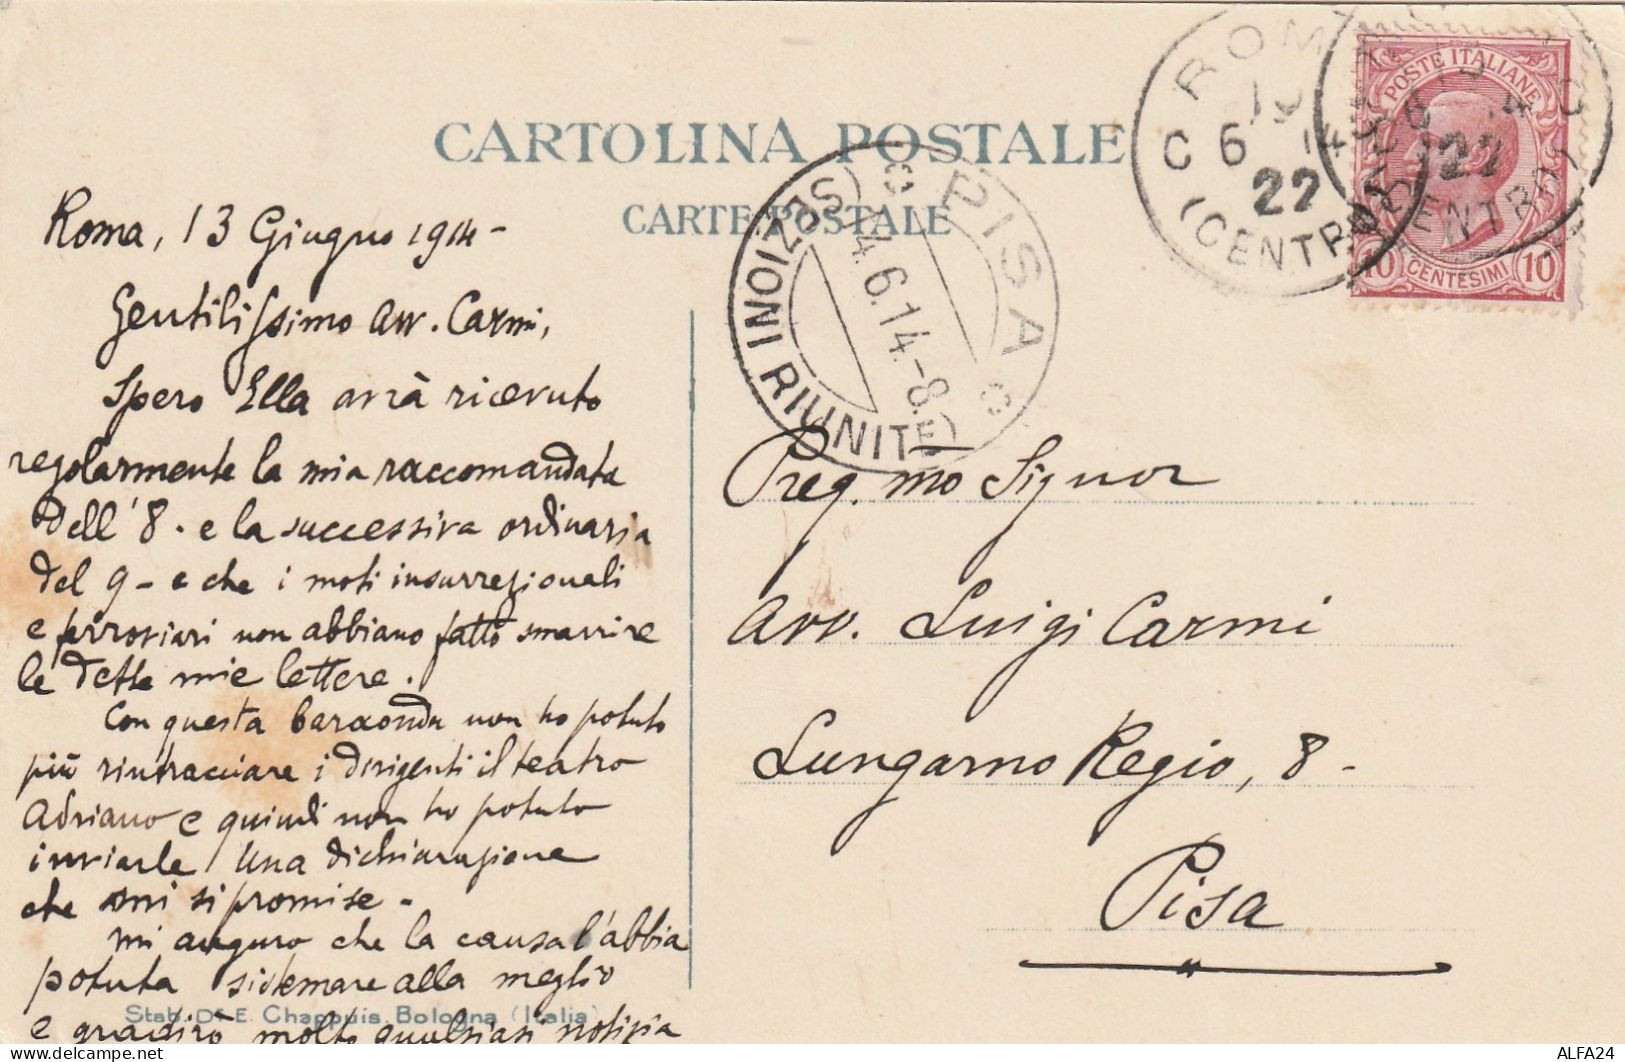 CARTOLINA POSTALE
CARTE POSTALE
Roma, 13 Giugno 1914 -
Gentilissimo Avv. Carmi,
Spero Ella avrà ricevuto
regolarmente la mia raccomandata
dell'8 - e la successiva ordinaria
del 9 - e che i moti insurrezionali
e ferroviari non abbiano fatto smarrire
le dette mie lettere.
Con questa baraonda non ho potuto
più rintracciare i dirigenti il teatro
Adriano e quindi non ho potuto
inviarle una dichiarazione
che mi si promise -
Mi auguro che la causa l'abbia
potuta sistemare alla meglio
e gradirò molto qualsiasi notizia
Stab. Dr. E. Chappuis. Bologna (Italia)
PISA
(SEZIONI RIUNITE)
14.6.14.-8.
ROM
6 14
22
(CENTR
POSTE ITALIANE
22
10 CENTESIMI 10
Preg.mo Signor
Avv. Luigi Carmi
Lungarno Regio, 8 -
Pisa
ALFA24